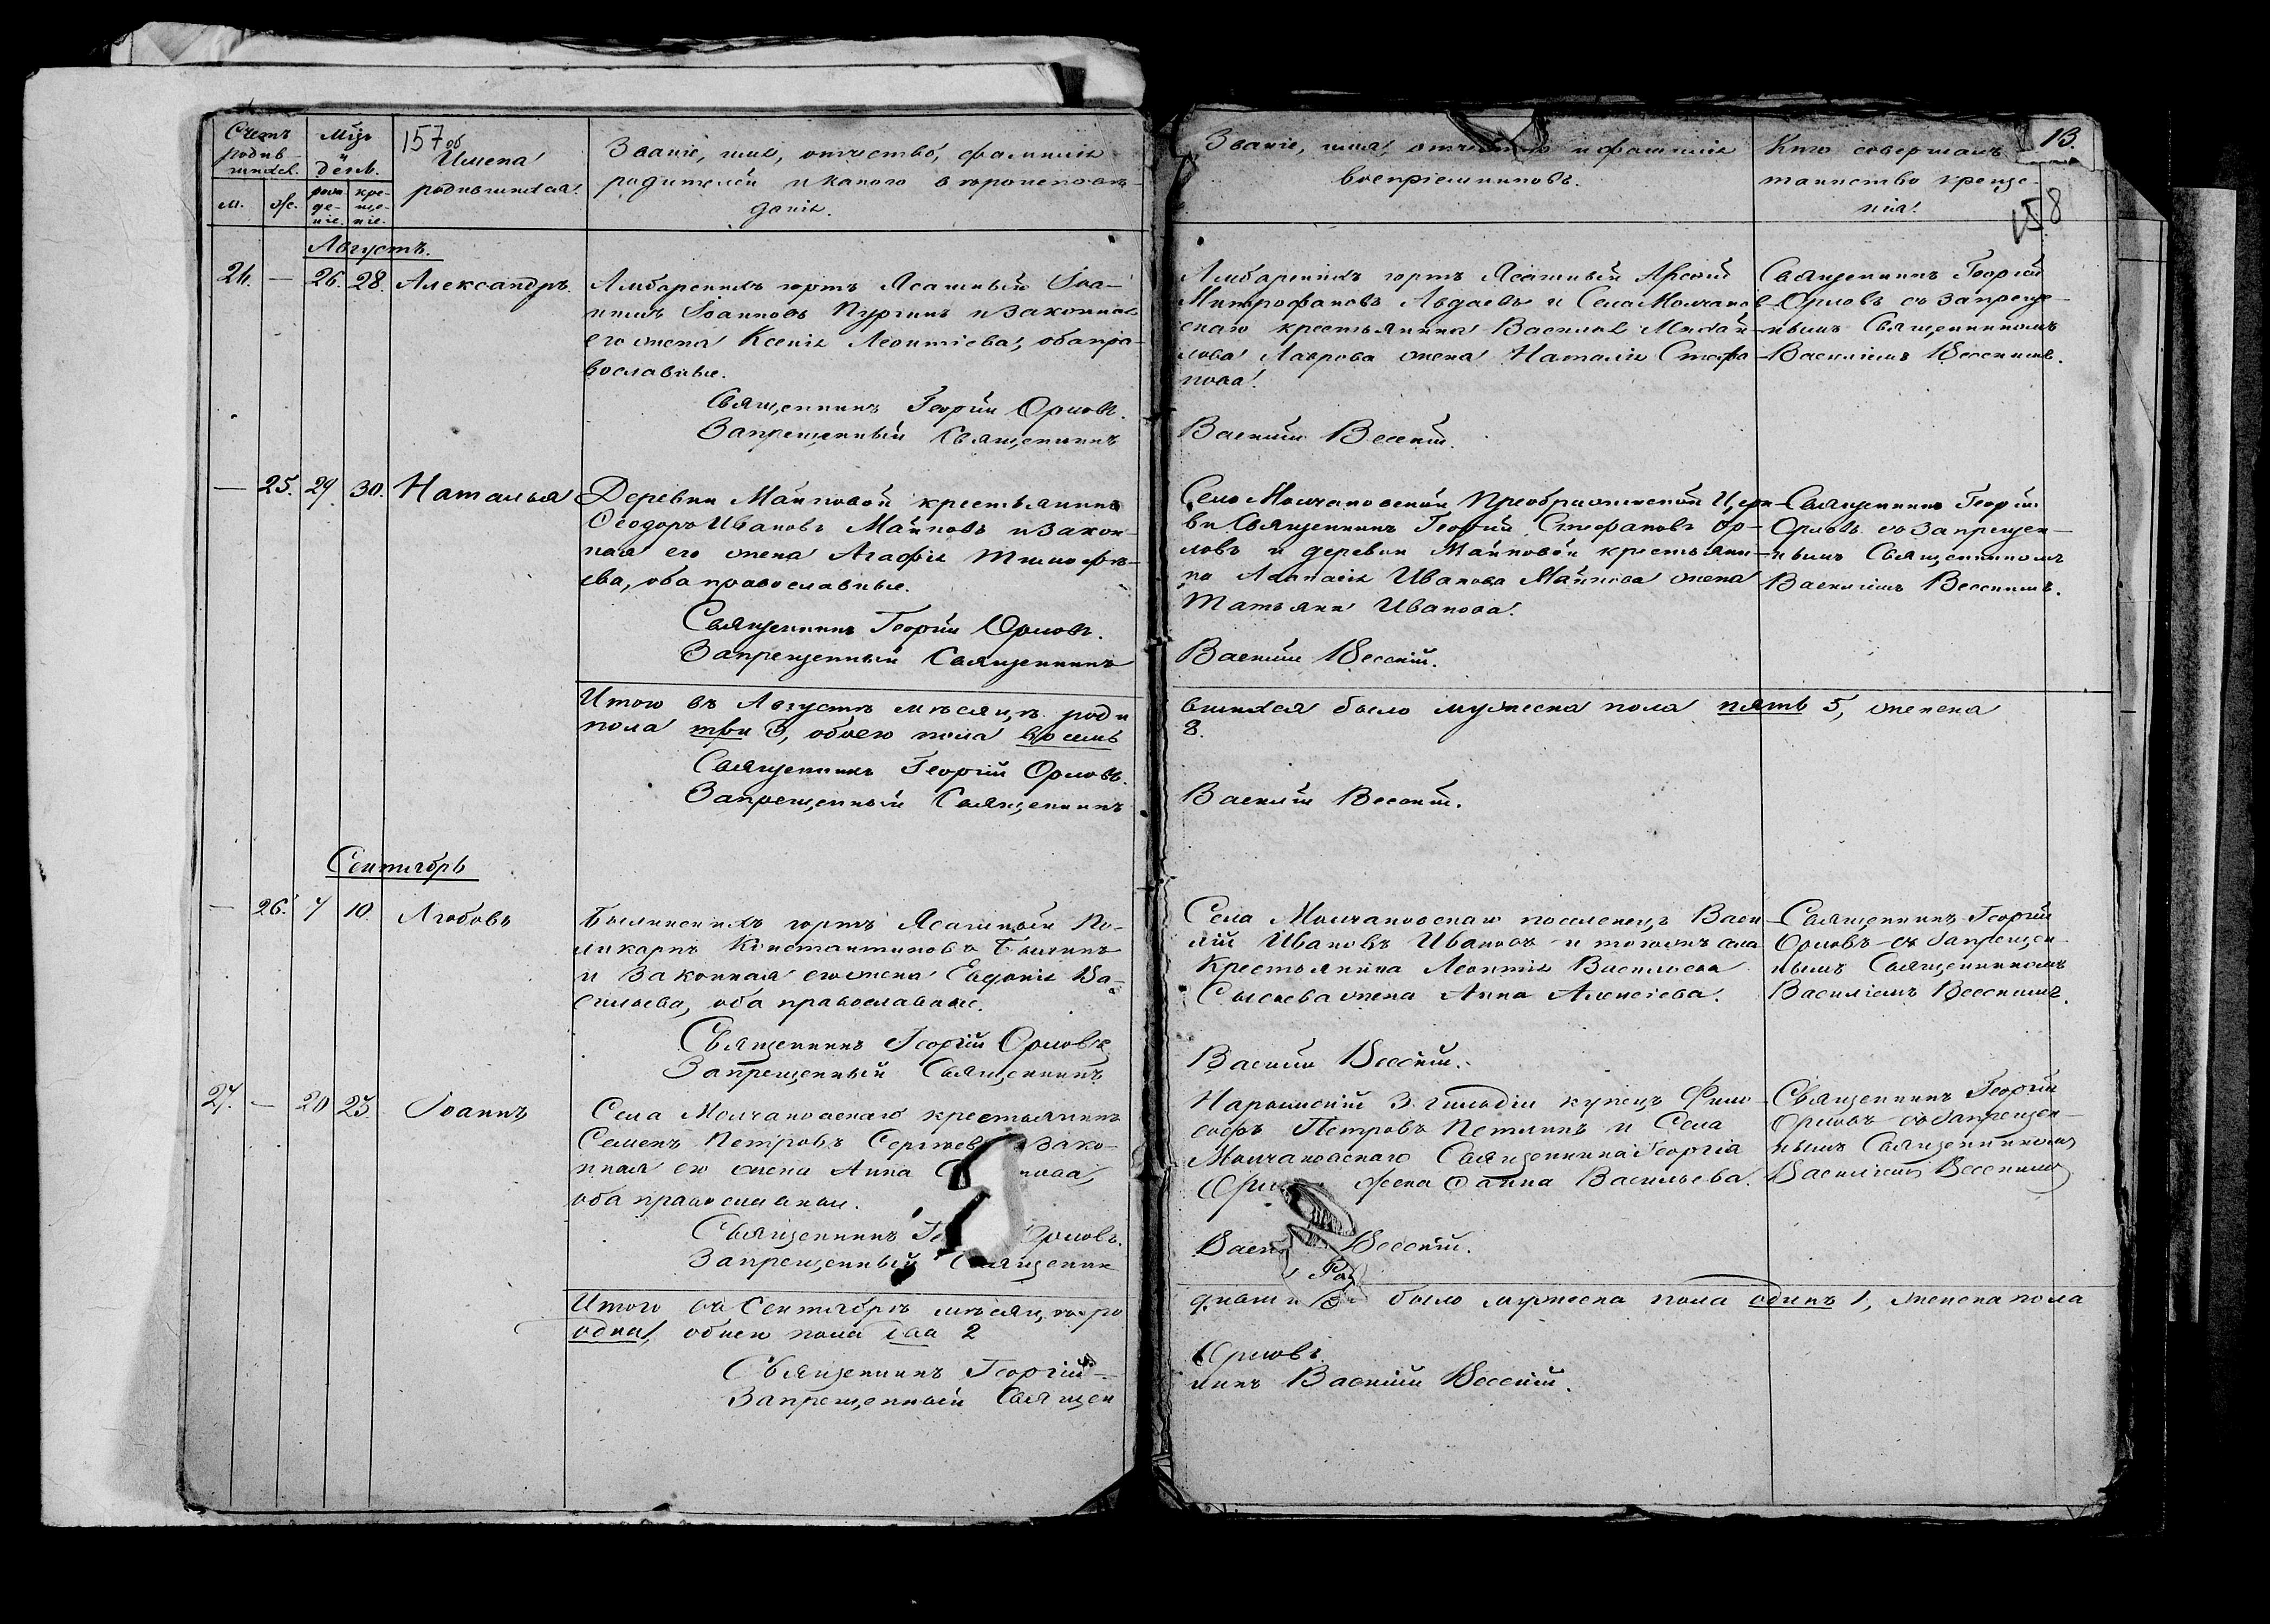 Счетъ родив шихся.
м. ж.
Мц̃ъ и день.
рож де- ніе. кре- ще- ніе.
157 об
Имена родившихся.
Званіе, имя, отчество, фамилія
родителей и какого вѣроисповѣ-
данія.
Августъ.
24. — 26. 28. Александръ.
Амбарскихъ юртъ Ясашный Іоа-
ннъ Іоанновъ Пургинъ и законная
его жена Ксенія Леонтіева, оба пра-
вославные.
Священникъ Георгій Орловъ.
Запрещенный Священникъ
— 25. 29. 30. Наталья
Деревни Майковой крестьянинъ
Ѳеодоръ Ивановъ Майковъ и закон-
ная его жена Агафія Тимофѣ-
ева, оба православные.
Священникъ Георгій Орловъ.
Запрещенный Священникъ
Итого въ Августѣ мѣсяцѣ роди
пола три 3, обоего пола восемь
Священникъ Георгій Орловъ.
Запрещенный Священникъ
Сентябрь
— 26. 7 10. Любовь
юртъ Ясашный По-
ликарпъ Константиновъ
и законная его жена Евдокія Ва-
сильева, оба православные.
Священникъ Георгій Орловъ
Запрещенный Священникъ
27. — 20 23. Іоаннъ
Села Молчановскаго крестьянинъ
Семенъ Петровъ Сергѣев зако-
нная его жена Анна
оба православные.
Священникъ Ге Орловъ.
Запрещенный Священник
Итого въ Сентябрѣ мѣсяцѣ ро
одна 1, обоего пола два 2
Священникъ Георгій
Запрещенный Священ
Званіе, имя, отчество и фамилія
воспріемниковъ.
Кто совершалъ
таинство креще-
нія.
13.
158
Амбарскихъ юртъ Ясашный
Митрофановъ Авдаевъ и Села Молчанов
скаго крестьянина Василія Михай-
лова Лаврова жена Наталія Стефа
нова.
Священникъ Георгій
Орловъ съ запреще-
ннымъ Священникомъ
Василіемъ Вессkimъ.
Василій Вескій.
Села Молчановской Преображенской Церк-
ви Священникъ Георгій Стефановъ Ор-
ловъ и деревни Майковой крестьяни-
на Аѳанасія Иванова Майкова жена
Татьяна Иванова.
Священникъ Георгій
Орловъ съ запрещен-
нымъ Священникомъ
Василіемъ
Василій Вескій.
вшихся было мужеска пола пять 5, женска
8.
Василій Вескій.
Села Молчановскаго поселенецъ Васи-
лій Ивановъ Ивановъ и того же села
Крестьянина Леонтія Васильева
Сысоева жена Анна Алексіева.
Священникъ Георгій
Орловъ съ запрещен
нымъ Священникомъ
Василіемъ
Василій Вескій.
Нарымскій 3 гильдіи купецъ Фили-
софъ Петровъ Петлинъ и Села
Молчановскаго Священника Георгія
Орло жена Ѳаина Васильева.
Священникъ Георгій
Орловъ съ запрещен-
нымъ Священникомъ
Василіемъ
Васи Вескій.
было мужеска пола одинъ 1, женска пола
Орловъ.
никъ Василій Вескій.